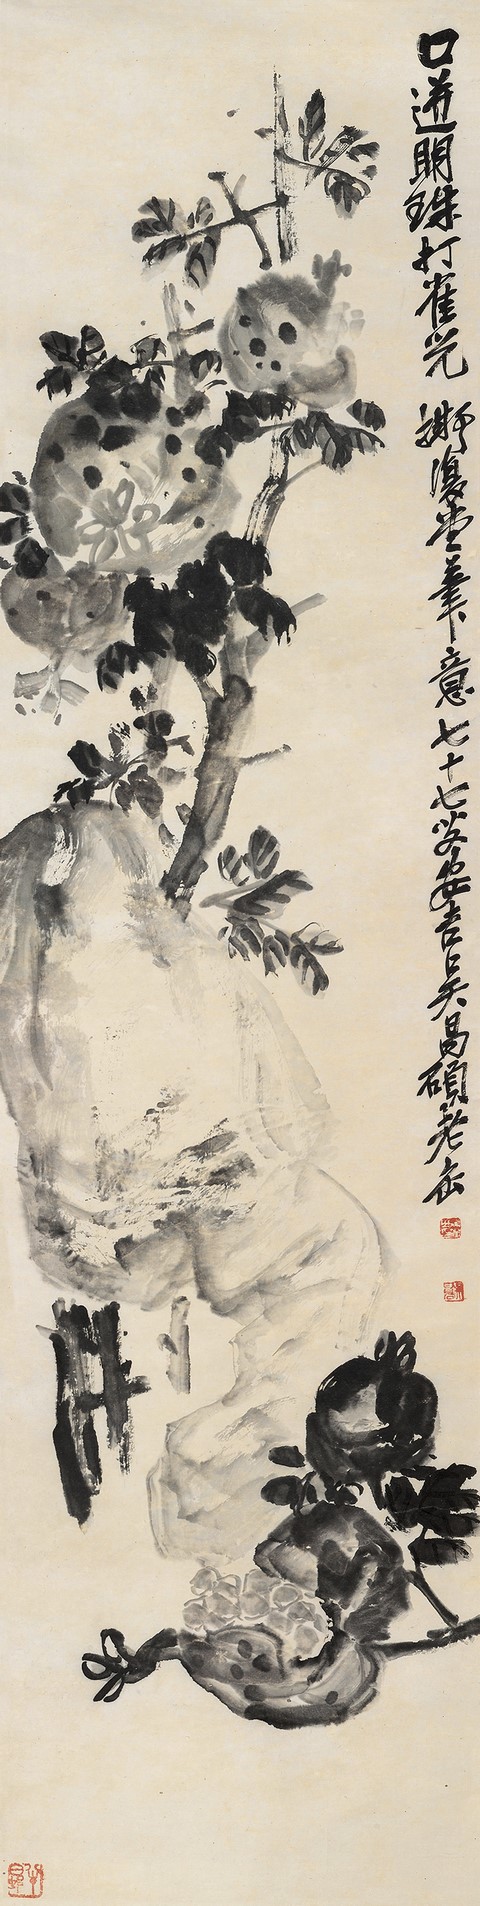 口迸明珠打雀兒 擬復堂筆意七十七叟安吉吳昌碩老缶